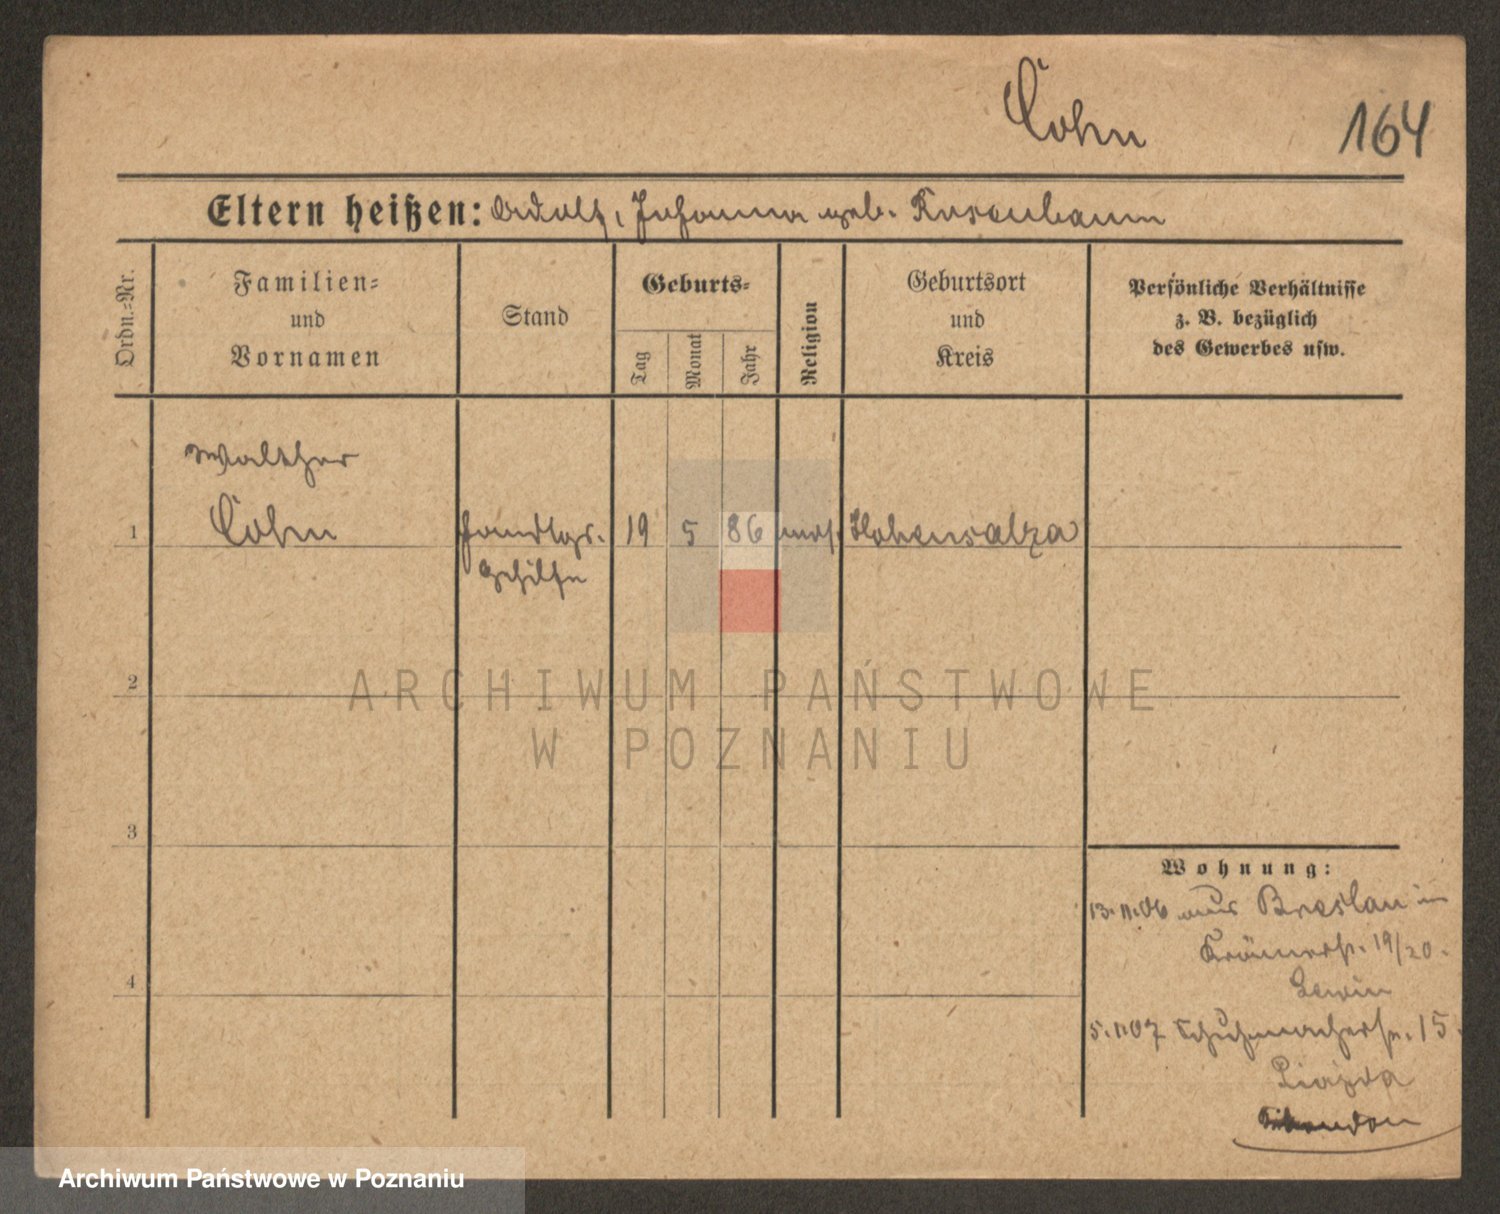 Cohn
164
Eltern heißen: Adolf, Johanna geb. Rosenbaum
Ordn.-Nr.
Familien-
und
Vornamen
Stand
Geburts-
Tag
Monat
Jahr
Religion
Geburtsort
und
Kreis
Persönliche Verhältnisse
z. B. bezüglich
des Gewerbes usw.
Walther
1 Cohn Handlgs. 19 5 86 mos. Hohensalza
Gehilfe
2
3
4
ARCHIWUM PAŃSTWOWE
W POZNANIU
Wohnung:
13.11.06 aus Breslau in
Krämerstr. 19/20.
Lewin
5.1.07 Schuhmacherstr. 15
London
Archiwum Państwowe w Poznaniu